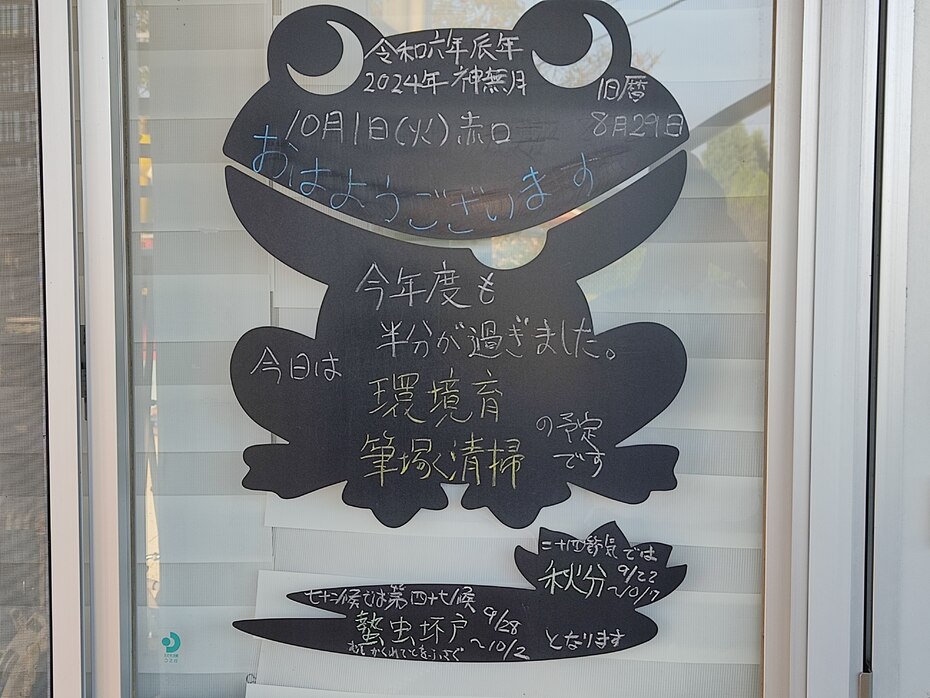 令和六年辰年
2024年神無月
旧暦
8月29日
10月1日(火)赤口
おはようございます
今年度も
半分が過ぎました。
今日は
環境育
筆塚く清掃
の予定
です
二十四節気では
秋分 9/22
~10/17
七十二候では第四十七候
蟄虫坏戸 9/28
~10/2
むしかくれてとをふさぐ
となります